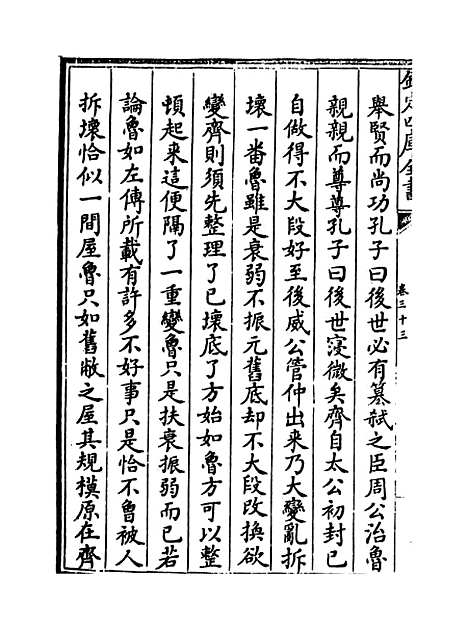 欽定四庫全書
卷三十三
舉賢而尚功孔子曰後世必有篡弑之臣周公治魯
親親而尊尊孔子曰後世寖微矣齊自太公初封已
自做得不大段好至後威公管仲出来乃大變亂拆
壞一番魯雖是衰弱不振元舊底却不大段改換欲
變齊則須先整理了已壞底了方始如魯方可以整
頓起来這便隔了一重變魯只是扶衰振弱而已若
論魯如左傳所載有許多不好事只是恰不曽被人
拆壞恰似一間屋魯只如舊敝之屋其規模原在齊